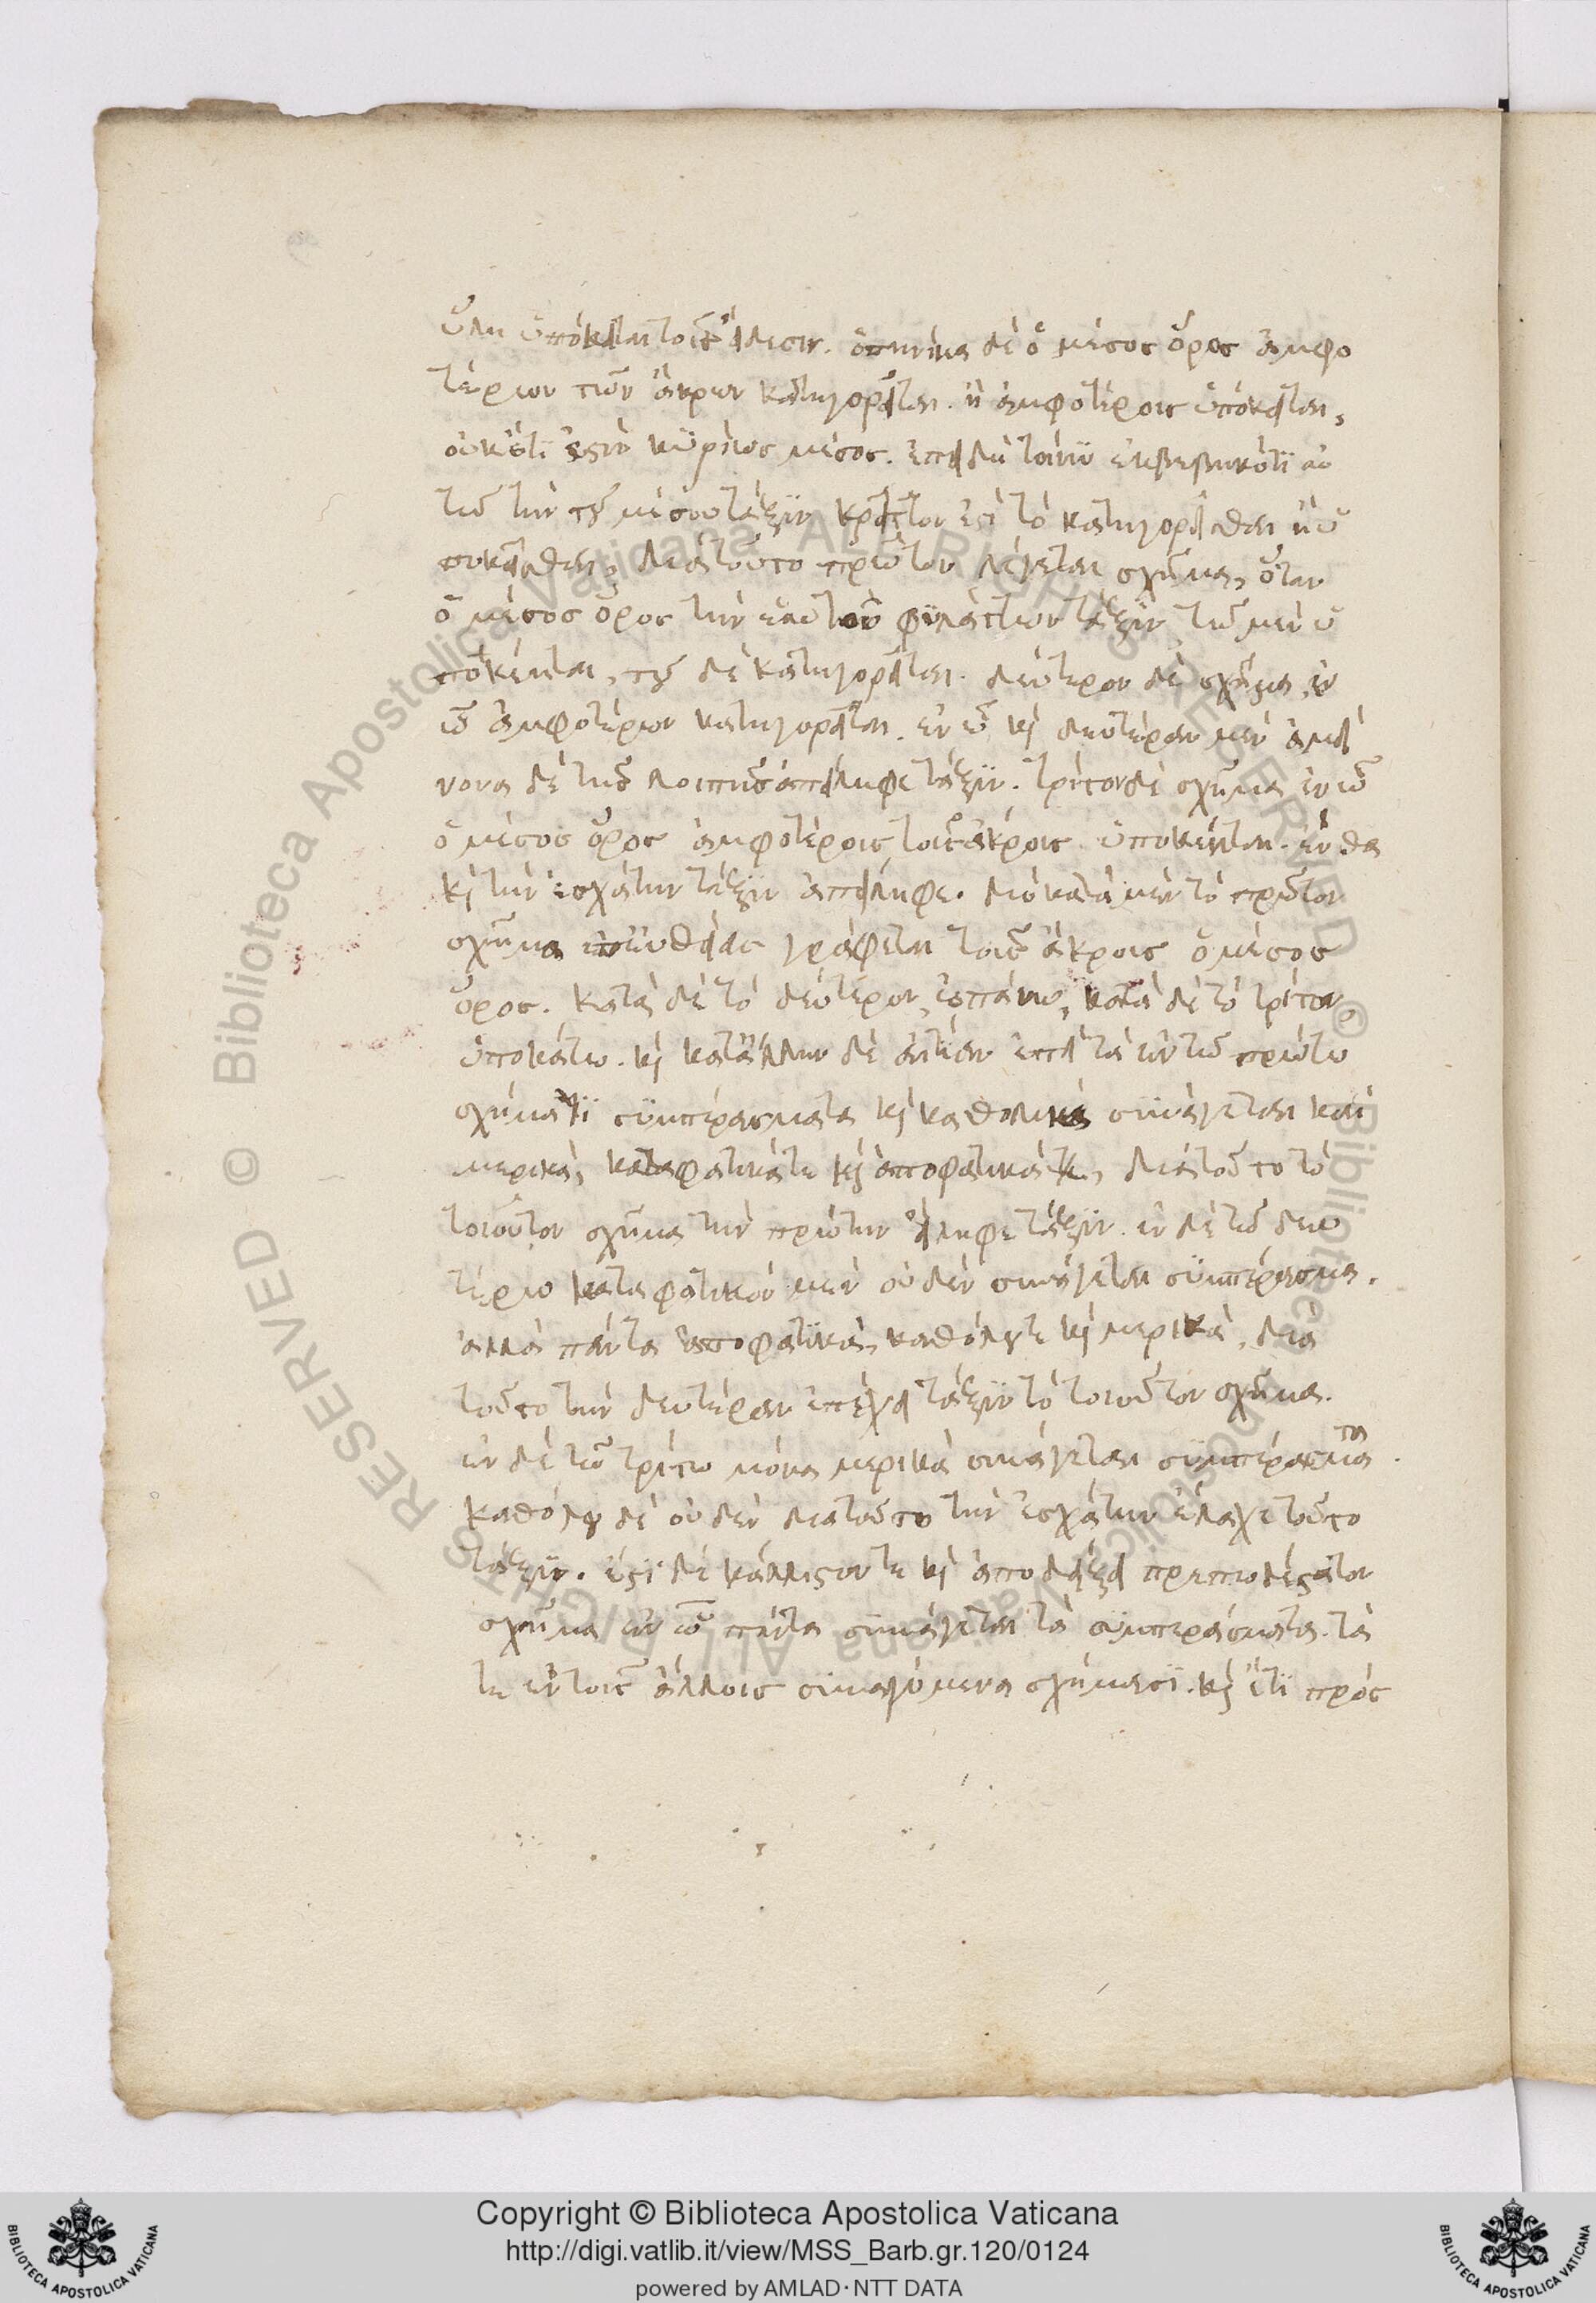 ὕλη ὑπόκειται τοῖς εἴδεσιν. ὁπηνίκα δὲ ὁ μέσος ὅρος ἀμφο
τέρων τῶν ἄκρων κατηγορεῖται. ἢ ἀμφοτέροις ὑπόκειται,
οὐκέτι ἐστὶ κυρίως μέσος. ἐπειδὴ τοίνυν ἐκβεβηκότι αὐ
τῷ τὴν τοῦ μέσου τάξιν κρεῖττον ἐστὶ τὸ κατηγορεῖσθαι ἢ ὑ
ποκεῖσθαι, διὰ τοῦτο πρῶτον λέγεται σχῆμα, ὅταν
ὁ μέσος ὅρος τὴν ἑαυτοῦ φυλάττων τάξιν τῷ μὲν ὑ
πόκειται, τοῦ δὲ κατηγορεῖται. δεύτερον δὲ σχῆμα, ἐν
ᾧ ἀμφοτέρων κατηγορεῖται. ἐν ᾧ καὶ δευτέραν μὲν ἀμεί
νονα δὲ τῆς λοιπῆς ἀπείληφε τάξιν. τρίτον δὲ σχῆμα ἐν ᾧ
ὁ μέσος ὅρος ἀμφοτέροις τοῖς ἄκροις ὑποκεῖται. ἔνθα
καὶ τὴν ἐσχάτην τάξιν ἀπείληφε. διὸ κατὰ μὲν τὸ πρῶτον
σχῆμα ἐπευθείας γράφεται τοῖς ἄκροις ὁ μέσος
ὅρος. κατὰ δὲ τὸ δεύτερον, ἐπάνω, κατὰ δὲ τὸ τρίτον,
ὑποκάτω. καὶ κατ' ἄλλην δὲ αἰτίαν ἐπεὶ τὰ ἐν τῷ πρώτῳ
σχήματι συμπεράσματα καὶ καθολικὰ συνάγεται καὶ
μερικὰ, καταφατικά τε καὶ ἀποφατικά τε, διὰ τοῦτο τὸ
τοιοῦτον σχῆμα τὴν πρώτην εἴληφε τάξιν. ἐν δὲ τῷ δευ
τέρῳ καταφατικὸν μὲν οὐδὲν συνάγεται συμπέρασμα.
ἀλλὰ πάντα ἀποφατικὰ, καθόλου τε καὶ μερικὰ, διὰ
τοῦτο τὴν δευτέραν ἐπέχει τάξιν τὸ τοιοῦτον σχῆμα.
ἐν δὲ τῷ τρίτῳ μόνα μερικὰ συνάγεται συμπεράσματα.
καθόλου δὲ οὐδὲν διατοῦτο τὴν ἐσχάτην ἔλαχε τοῦτο
τάξιν. ἔστι δὲ κάλλιστόν τε καὶ ἀποδείξει πρεπωδέστατον
σχῆμα ἐν ᾧ πάντα συνάγεται τὰ συμπεράσματα. τά
τε ἐν τοῖς ἄλλοις συναγόμενα σχήμασι. καὶ ἔτι πρὸς
Copyright © Biblioteca Apostolica Vaticana
http://digi.vatlib.it/view/MSS_Barb.gr.120/0124
powered by AMLAD·NTT DATA